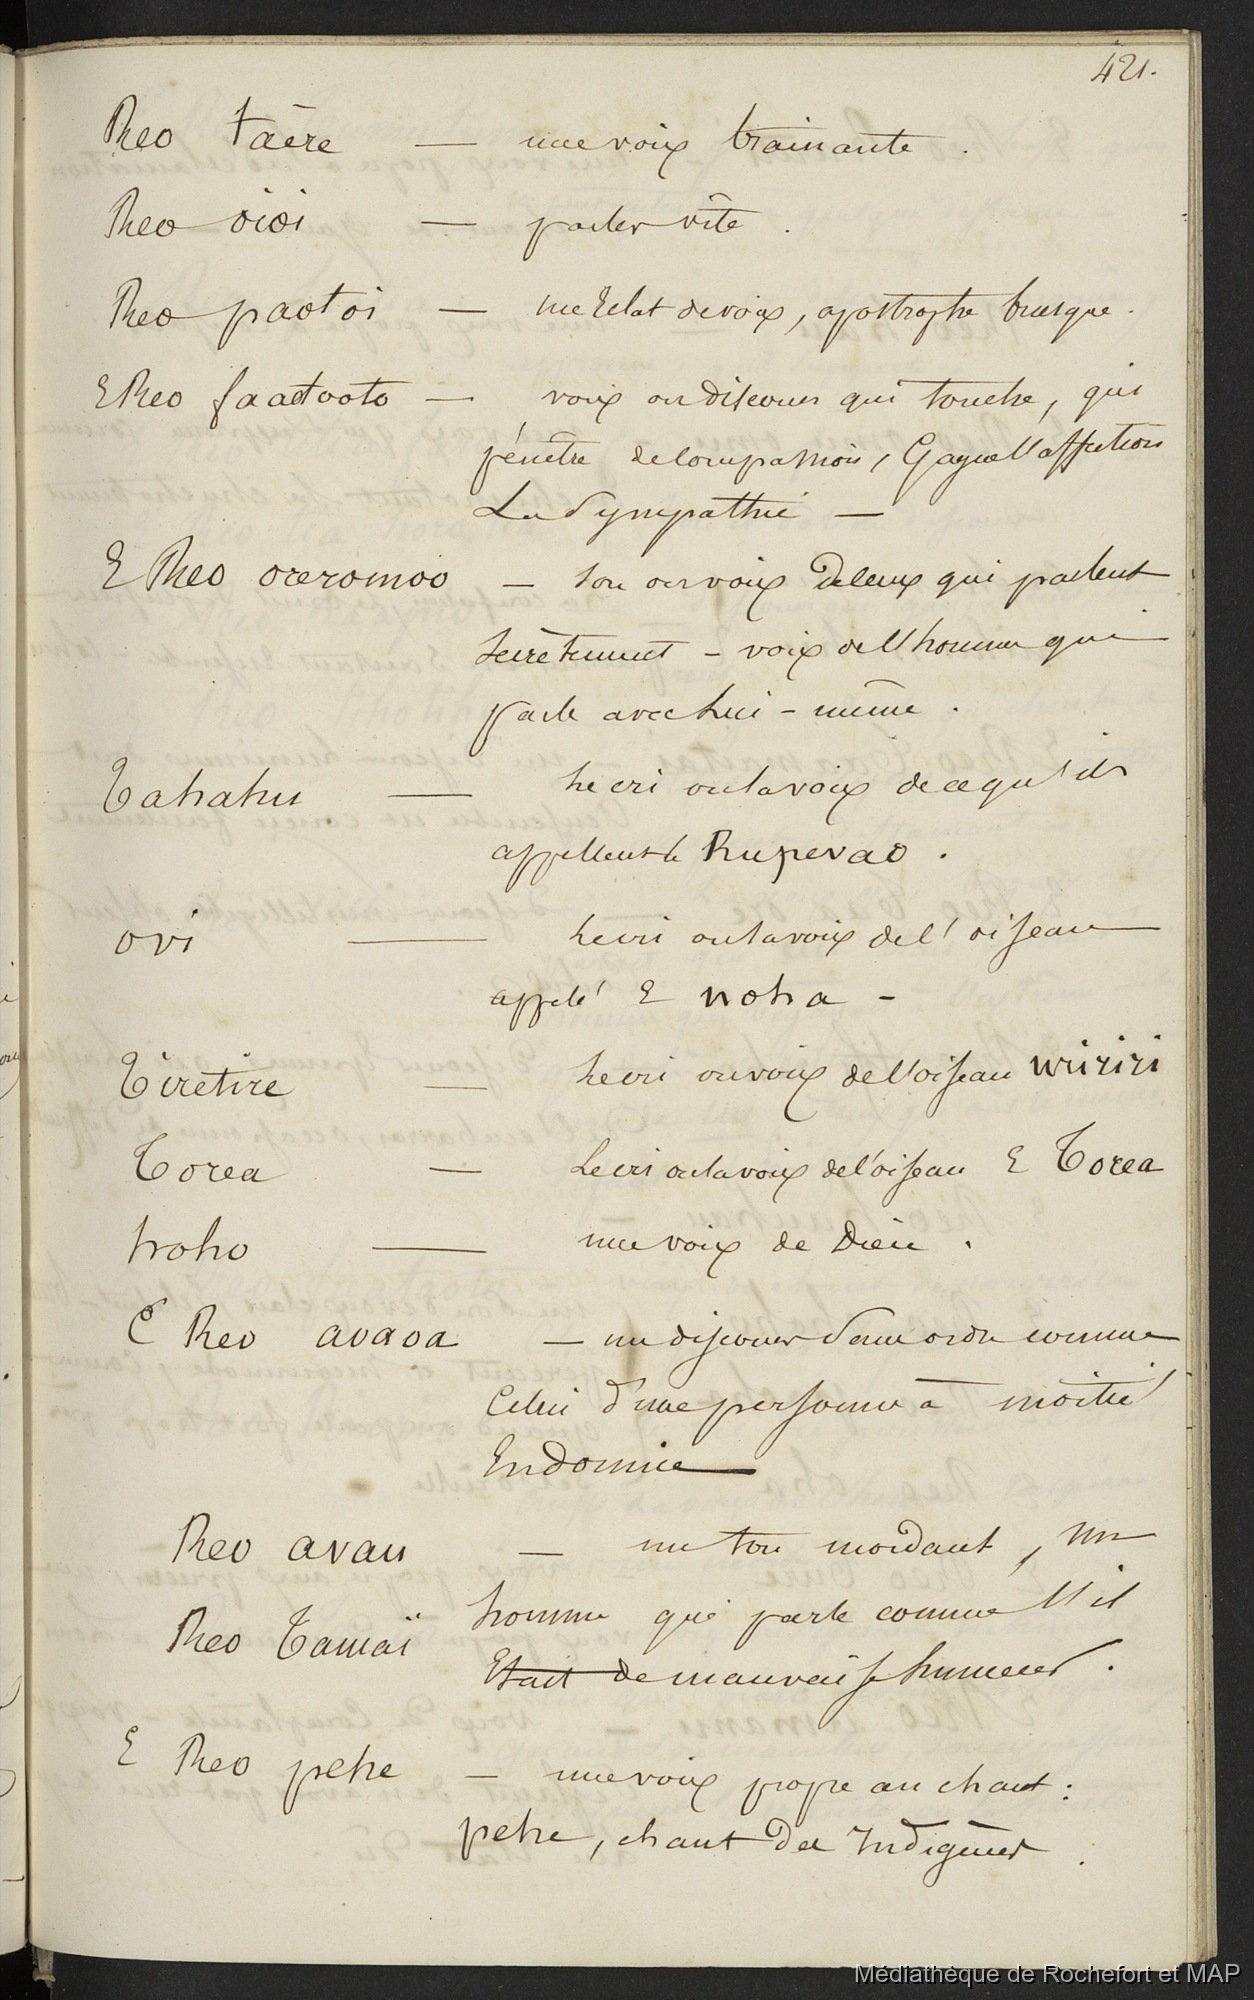 421.
Reo taëre — une voix trainante .
Reo oioi — parler vîte .
Reo paotoi — une Eclat de voix, apostrophe brusque .
E Reo faatooto — voix ou discours qui touche, qui
pénètre de compassion, Gagne l'affection
La Sympathie —
E Reo oreromoo — son ou voix de ceux qui parlent
secrètement – voix de l'homme qui
parle avec lui – même .
Tahahu — le cri ou la voix de ce qu'ils
appellent le Rupevao .
ovi — le cri ou la voix de l'oiseau
appelé E noha –
Tiretire — le cri ou voix de l'oiseau uriiriri
Torea — Le cri ou la voix de l'oiseau E Torea
hoho — une voix de Dieu .
E Reo avava — un discours sans ordre comme
Celui d'une personne à moitié
Endormie —
Reo avau — un ton mordant, un
homme qui parle comme s'il
Reo Tamaï
Etait de mauvaise humeur .
E Reo pehe — une voix propre au chant :
pehe, chant des Indigènes .
Médiathèque de Rochefort et MAP